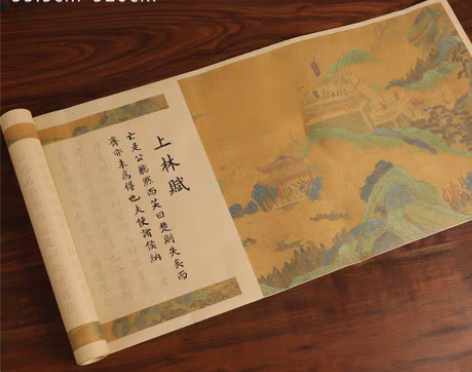 上林賦
亡是公聽然而笑曰楚則失矣而
齊亦未為得也夫使諸侯納